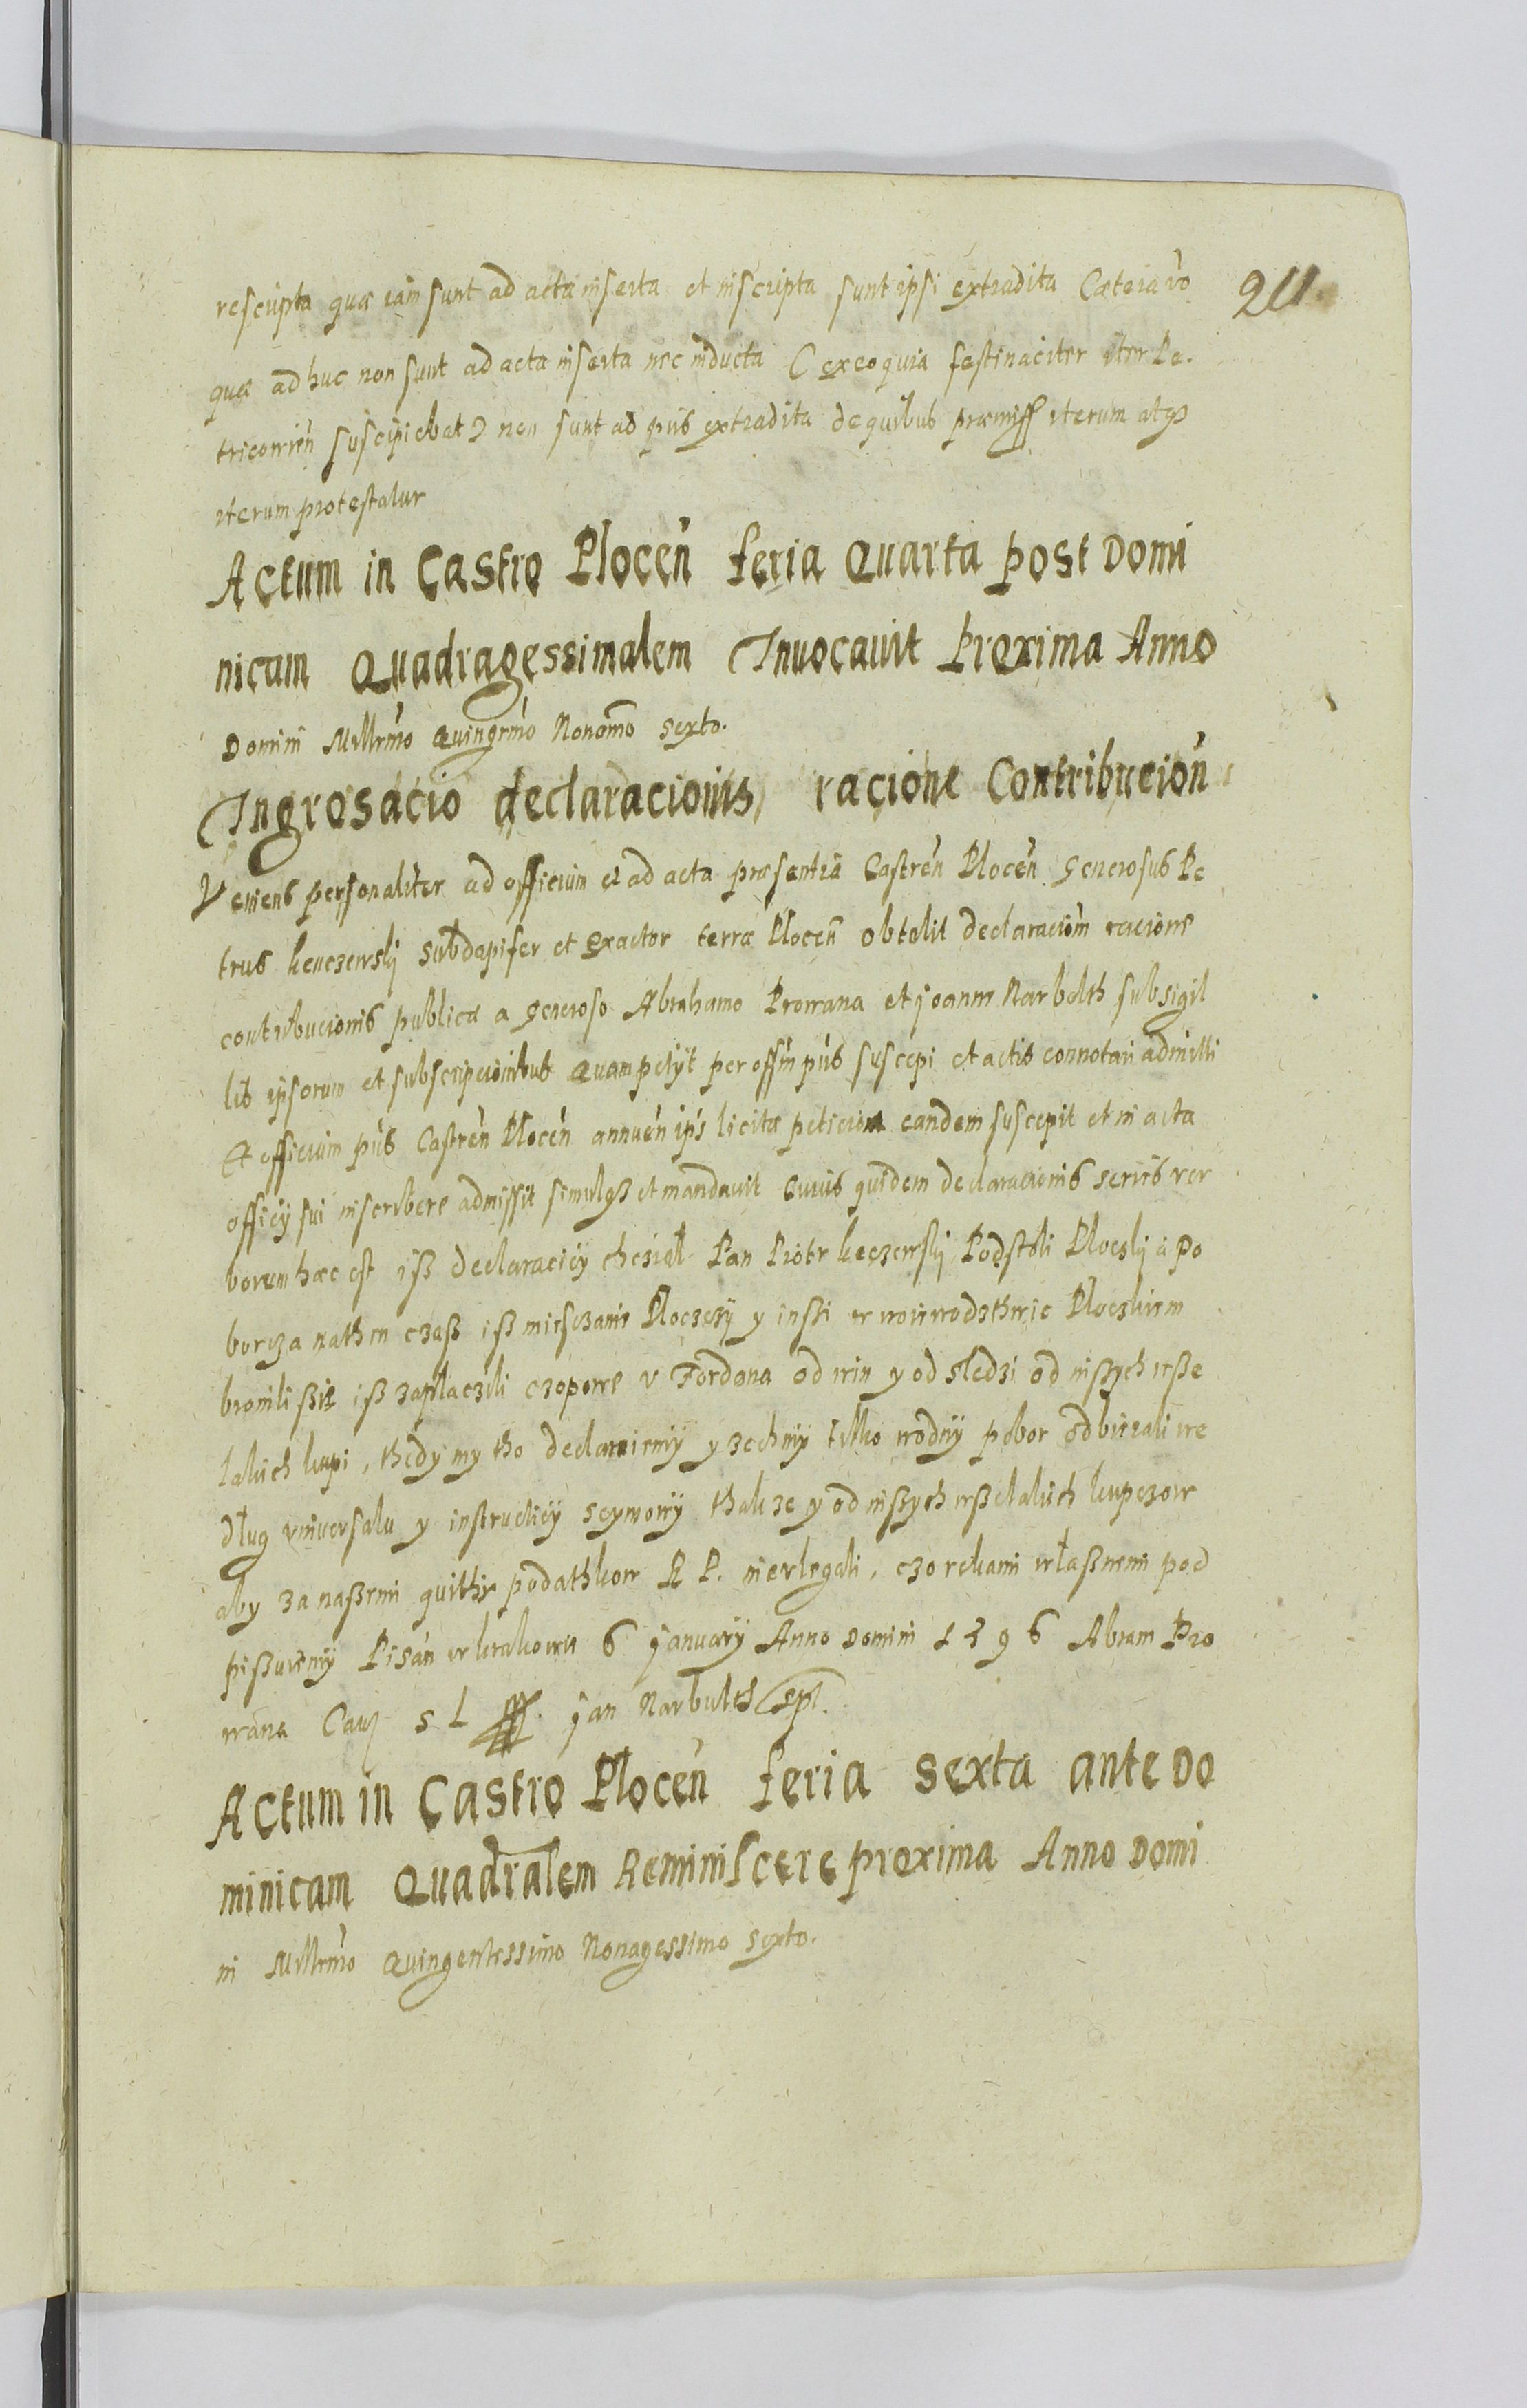 211.
rescripta quæ iam sunt ad acta inserta et inscripta sunt ipsi extradita Cætera vo
quæ ad huc non sunt ad acta inserta nec inducta ( ex eo quia festinaciter iter Pe.
tricovien suscipiebat ) non sunt ad pns extradita de quibus præmiss iterum atq3
iterum protestatur
Actum in Castro Plocen feria Quarta post Domi
nicam Quadragessimalem Invocavit Proxima Anno
Domini Millmo Quingmo Nonomo sexto.
Ingrosacio declaracionis racione Contribucion
Veniens personaliter ad officium et ad acta præsentia Castren Plocen Generosus Pe
trus subdapifer et Exactor terræ Plocen obtulit declaraciom racione
contribucionis publicæ a Generoso Abrahamo Prowana et Joanne Narbolth sub sigil
lis ipsorum et subscripcionibus Quam petyt per offm pns suscepi et actis connotari admitti
Et officium pns Castren Plocen annuen ips licitæ peticioni eandem suscepit et in acta
officy sui inscribere admissit simulq3 et mandavit Cuius quidem declaracionis series ver
borum hæc est iß declaraciy chczial Pan Piotr Podstoli Ploczky a po
borcza nathen czaß iß miesczanie Ploczczy y inßi w woiewodzthwie Ploczkiem
bronili ßie iß zaplaczili czopowe v Fordona od win y od sledzi od inßych wße
lakich kupi, thedy my tho declaruiemy y zechmy tilko wodny pobor odbierali we
dlug vniversalu y instructiey seymowy thakze y od inßych wßelakich kupczow
aby za naßemi quithy podathkow R P. nievlegali, czo rekami wlaßnemi pod
pißuiemy Pisan w Krakowie 6 January Anno Domini 1596 Abram Pro
wana S L Jan Narbulth
Actum in Castro Plocen feria sexta ante Do
minicam Quadralem Reminiscere proxima Anno Domi
ni Millmo Quingentessimo Nonagessimo sexto.